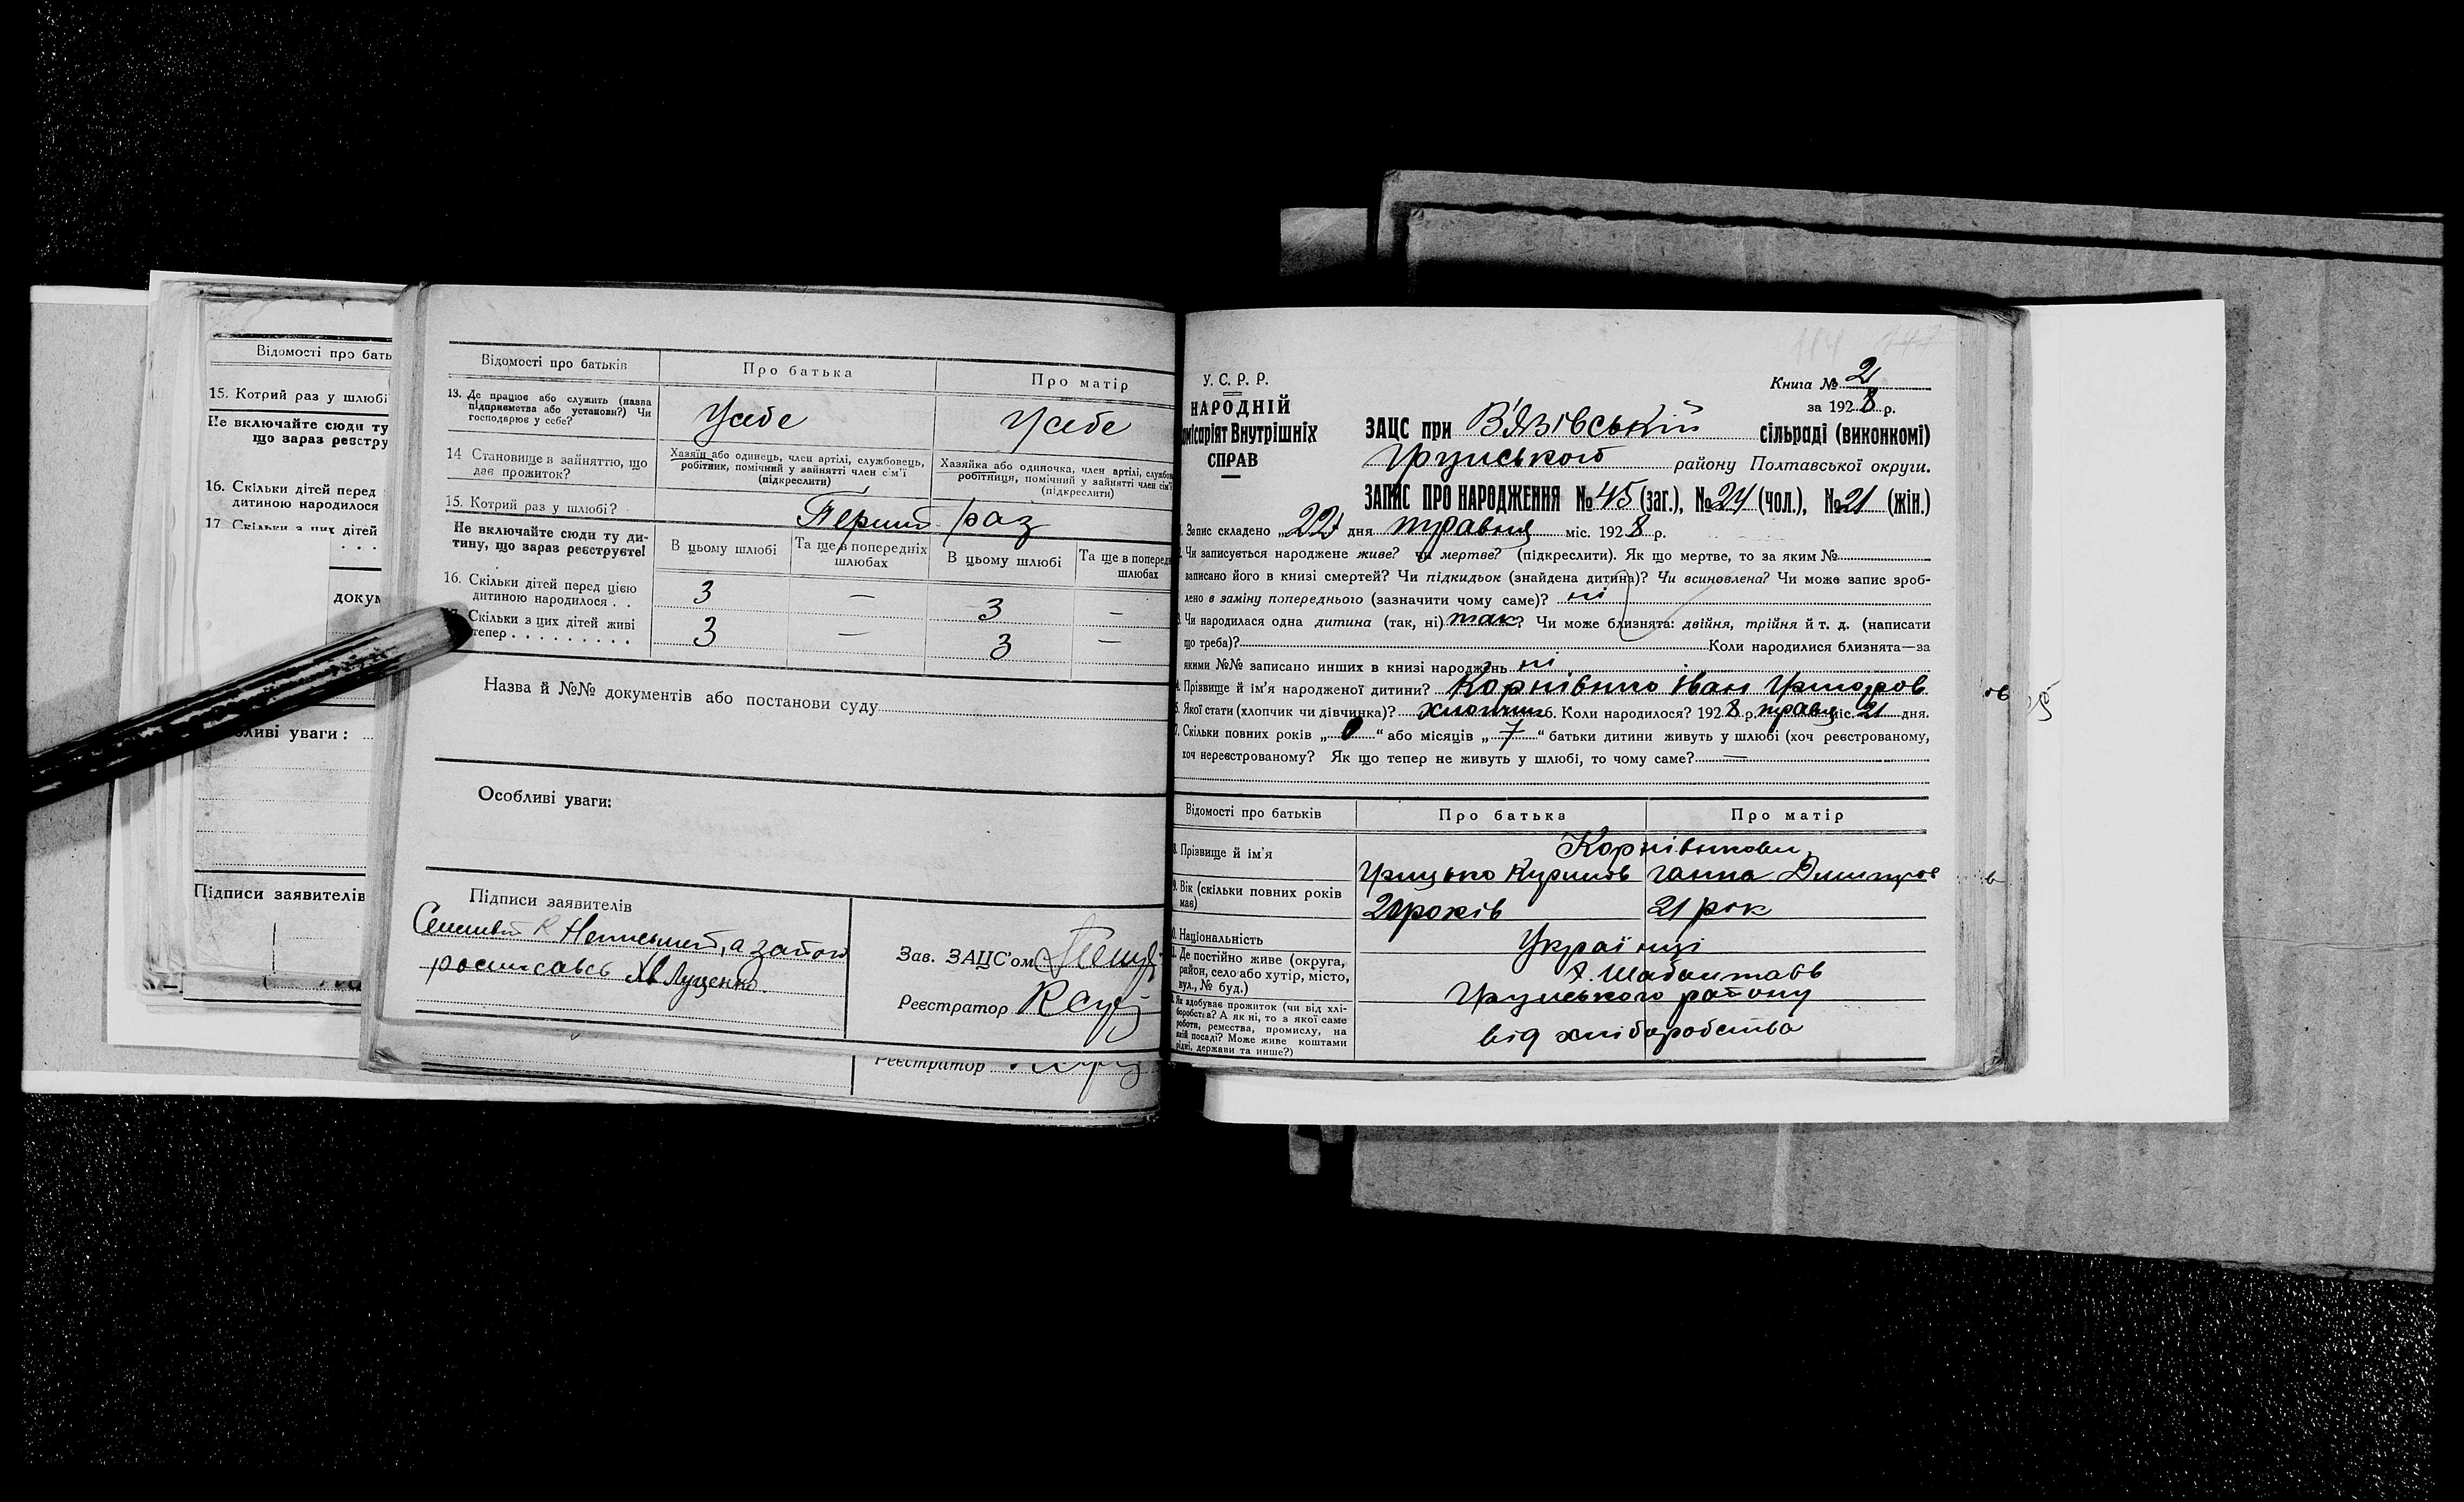 Відомості про бать
15. Котрий раз у шлюбі
Не включайте сюди ту
що зараз реєстру
16. Скільки дітей перед
дитиною народилося
17. Скільки з цих дітей
. . .
докум
бливі уваги:
Підписи заявителів
Відомості про батьків
Про батька
Про матір
13. Де працює або служить (назва
підприємства або установи?) Чи
господарює у себе?
Усебе
Усебе
14 Становище в зайняттю, що
дає прожиток?
Хазяїн або одинець, член артілі, службовець,
робітник, помічний у зайнятті член сім'ї
(підкреслити)
Хазяйка або одиночка, член артілі, службов
робітниця, помічний у зайнятті член сім'ї
(підкреслити)
15. Котрий раз у шлюбі?
Перший раз
Не включайте сюди ту ди-
тину, що зараз реєструєте!
В цьому шлюбі
Та ще в попередніх
шлюбах
В цьому шлюбі
Та ще в поперед
шлюбах
16. Скільки дітей перед цією
дитиною народилося . .
3 — 3 —
Скільки з цих дітей живі
тепер . . . . . . . . .
3 — 3 —
Назва й №№ документів або постанови суду
Особливі уваги:
Підписи заявителів
Неписьмений, а за його
росписавсь Ів Луценко.
Зав. ЗАЦС'ом
Реєстратор
Реєстратор
184 147
У. С. Р. Р.
НАРОДНІЙ
місаріят Внутрішніх
СПРАВ
Книга № 2
за 1928 р.
ЗАЦС при В'язівській сільраді (виконкомі)
Грунського району Полтавської округи.
ЗАПИС ПРО НАРОДЖЕННЯ № 45 (заг.), № 24 (чол.), № 21 (жін.)
Запис складено „22" дня травня міс. 1928 р.
Чи записується народжене живе? чи мертве? (підкреслити). Як що мертве, то за яким №
записано його в книзі смертей? Чи підкидьок (знайдена дитина)? Чи всиновлена? Чи може запис зроб-
лено в заміну попереднього (зазначити чому саме)? ні
Чи народилася одна дитина (так, ні) так? Чи може близнята: двійня, трійня й т. д. (написати
що треба)? Коли народилися близнята—за
якими №№ записано инших в книзі народжень ні
Прізвище й ім'я народженої дитини? Корнієнко Іван Грицьков
5. Якої стати (хлопчик чи дівчинка)? хлопчик 6. Коли народилося? 1928 р. травня міс. 21 дня.
7. Скільки повних років „0" або місяців „7" батьки дитини живуть у шлюбі (хоч реєстрованому,
хоч нереєстрованому? Як що тепер не живуть у шлюбі, то чому саме? —
Відомості про батьків
Про батька
Про матір
8. Прізвище й ім'я
Корнієнкови
Грицько Купріянов Ганна Дмитров
9. Вік (скільки повних років
має)
20 років 21 рік
Національність
Українці
Де постійно живе (округа,
район, село або хутір, місто,
вул., № буд.)
Грунського району
Як здобуває прожиток (чи від хлі-
боробства? А як ні, то з якої саме
роботи, ремества, промислу, на
якій посаді? Може живе коштами
рідні, держави та инше?)
від хліборобства